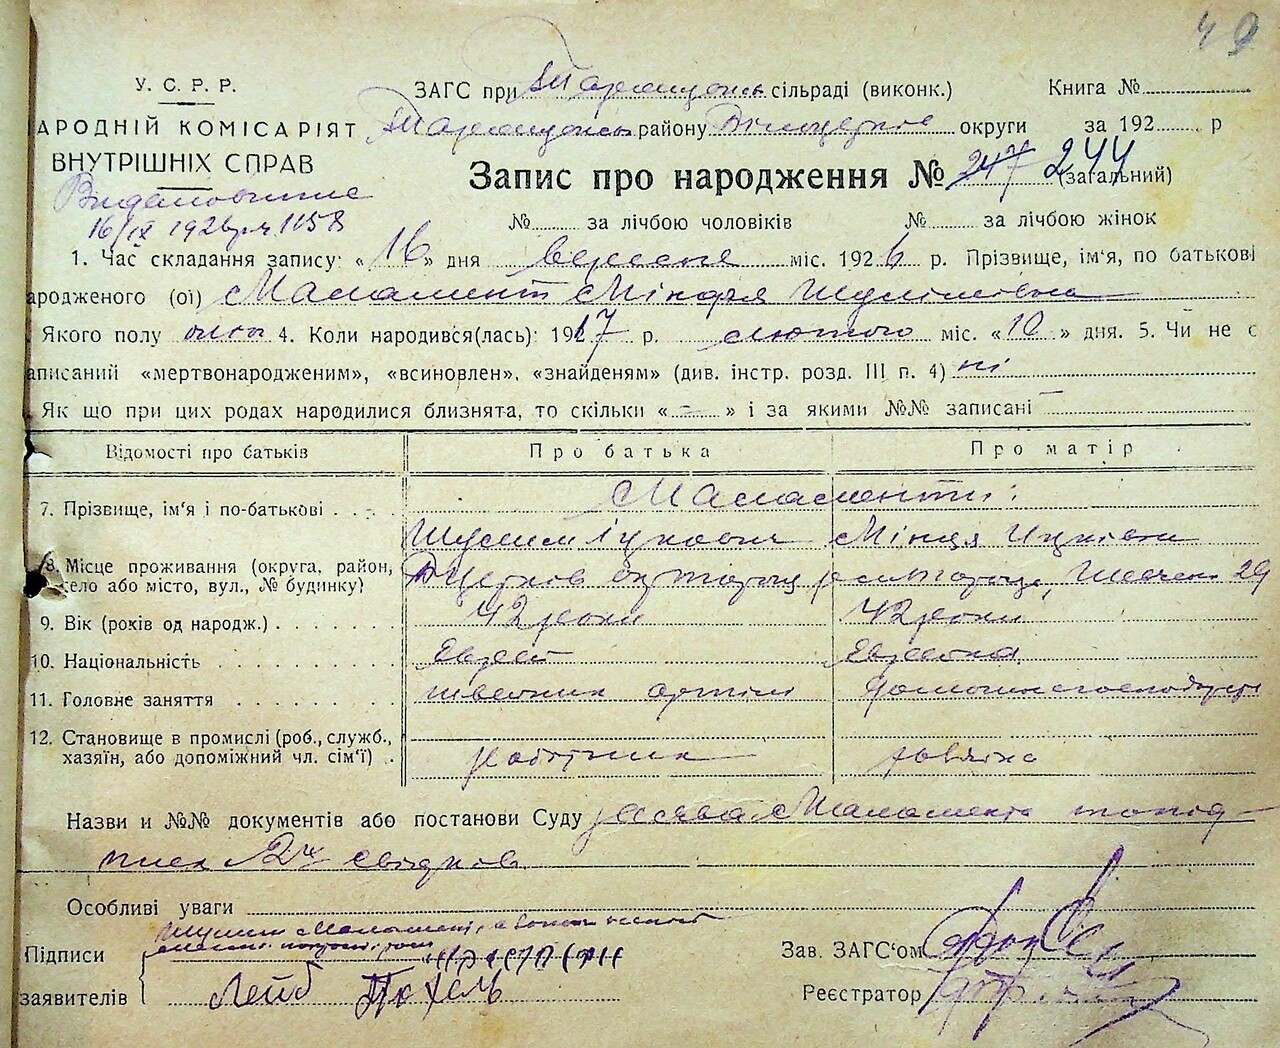 49
У. С. Р. Р.
АРОДНІЙ КОМІСАРІЯТ
ВНУТРІШНІХ СПРАВ
16/IX 1926 р. № 1158
ЗАГС при Таращан. сільраді (виконк.) Книга №
Таращан. району Білоцерків. округи за 192 р
Запис про народження № 247 244 (загальний)
№ за лічбою чоловіків № за лічбою жінок
1. Час складання запису: «16» дня вересня міс. 1926 р. Прізвище, ім'я, по батькові
ародженого (ої) Маламент Шулімівна
Якого полу жін 4. Коли народився(лась): 1917 р. лютого міс. «10» дня. 5. Чи не є
аписаний «мертвонародженим», «всиновлен», «знайденям» (див. інстр. розд. III п. 4) ні
Як що при цих родах народилися близнята, то скільки « - » і за якими №№ записані
Відомості про батьків Про батька Про матір
7. Прізвище, ім'я і по-батькові Маламенти:
Шулим Іцкович Мінця Ицківна
8. Місце проживання (округа, район,
село або місто, вул., № будинку) Б Церков окр Таращ 29
9. Вік (років од народж.) 42 роки 42 роки
10. Національність Еврей Еврейка
11. Головне заняття швейник артіль домашнє господарство
12. Становище в промислі (роб., служб.,
хазяїн, або допоміжний чл. сім'ї) робітник хазяйка
Назви и №№ документів або постанови Суду заява Маламента та підписи 2х свідків
Особливі уваги
Шулим Маламент, а
Підписи
заявителів Лейб
Зав. ЗАГС'ом
Реєстратор